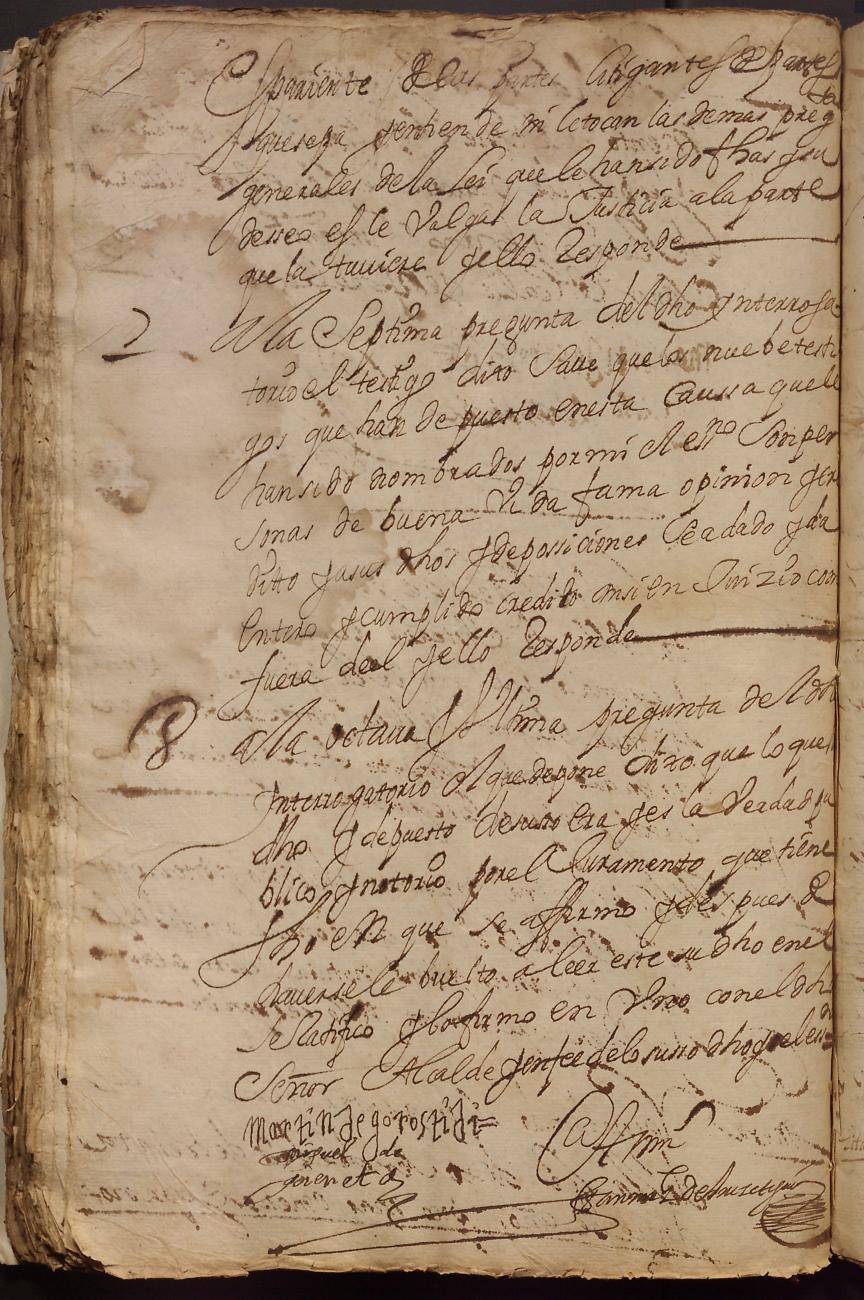 Espariente de las partes litigantes de partes
que sepa y entiende ni le tocan las demas preg
generales de la lei que le han sido fhas y su
desseo es le Valga la Justicia a la parte
que la tuviere y ello Responde
7 A la Septima pregunta del dho Interroga
torio el testigo dixo Save que los nuebe testi
gos que han depuesto en esta Caussa que le
han sido nombrados por mi el essno son per
sonas de buena Vida fama opinion y cre
ditto y a sus dhos y deposiciones se a dado y da
entero y cumplido credito ansi en Juizio com
fuera deel y ello Responde
8 A la octaua y Ultima pregunta del dho
Interrogatorio el que depone dixo que lo que
dho y depuesto desuso era y es la Verdad pu
blico y notorio por el Juramento que tiene
fho en que se affirmo y despues de
hauersele buelto a leer este su dho en el
se Ratifico y lo firmo en Uno con el dho
Señor Alcalde y en fee de lo suso dho yo el essno
Martin de gorostidi
miguel de